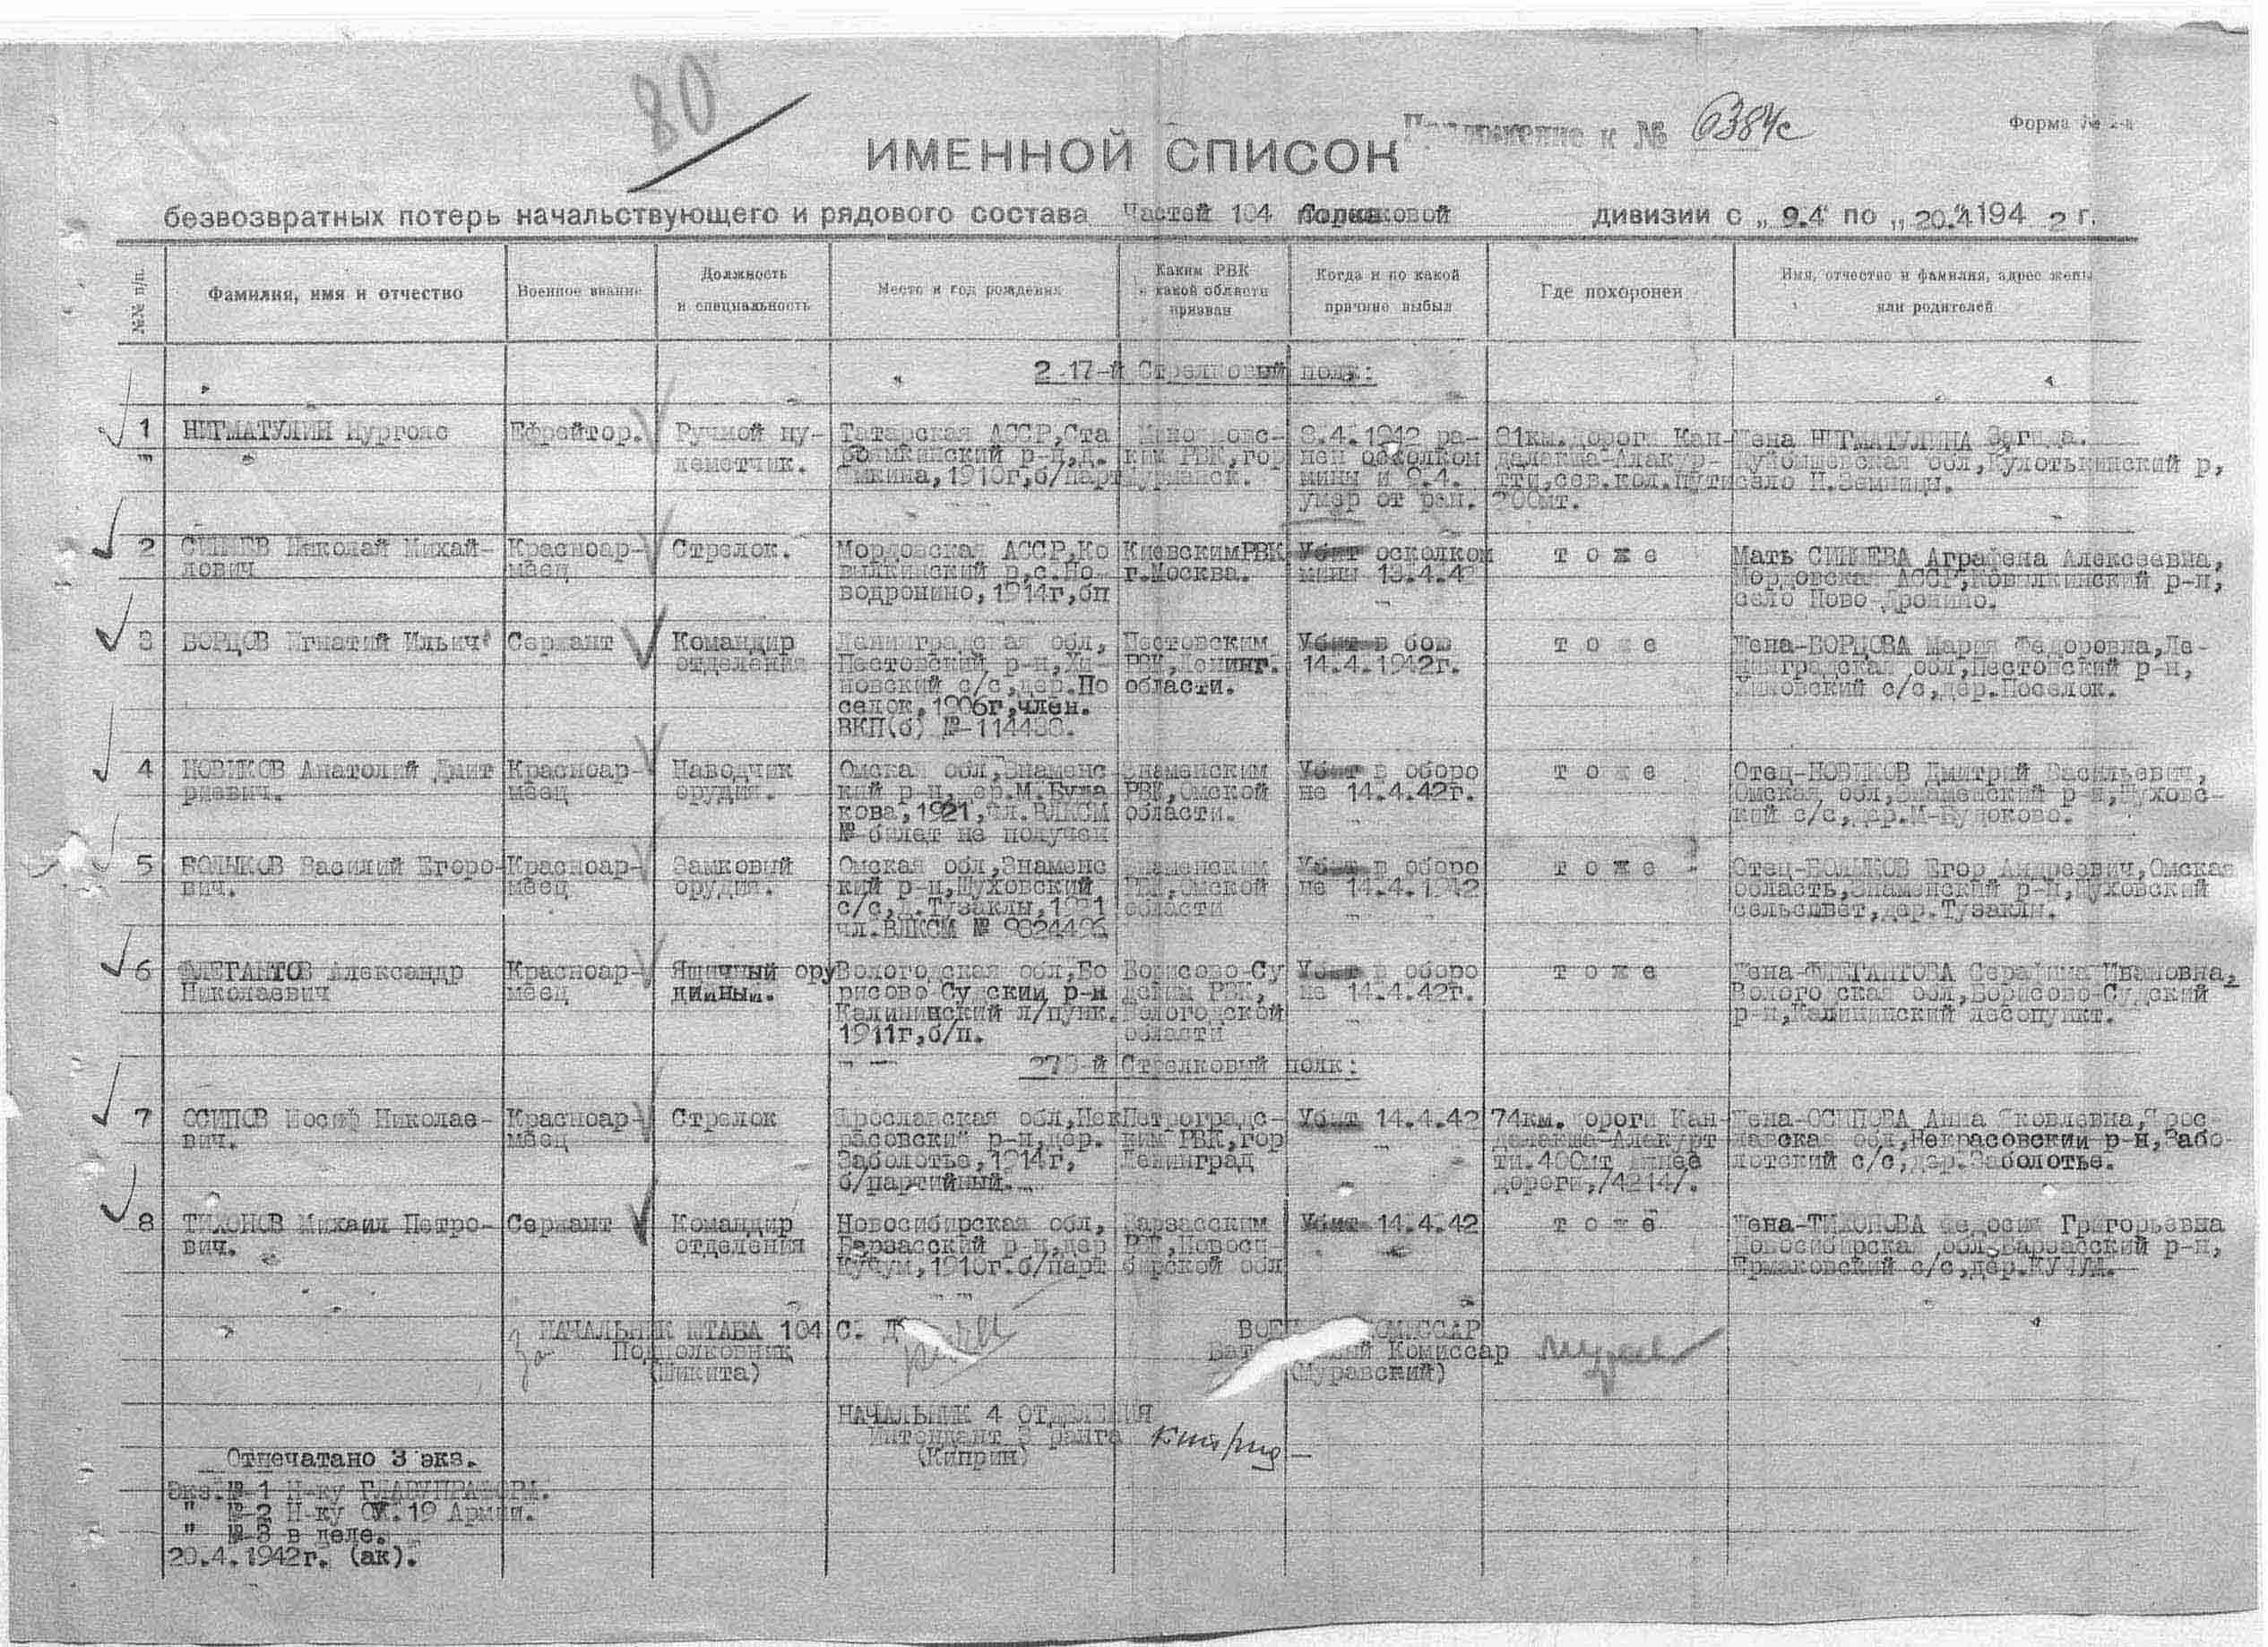 80
Приложение к № 6384с
Форма № 2-а
ИМЕННОЙ СПИСОК
безвозвратных потерь начальствующего и рядового состава Частей 104 Стрелковой дивизии с „ 9.4 " по „ 20.4 194 2 г.
№№ п/п.
Фамилия, имя и отчество
Военное звание
Должность
и специальность
Место и год рождения
Каким РВК
и какой области
призван
Когда и по какой
причине выбыл
Где похоронен
Имя, отчество и фамилия, адрес жены
или родителей
2-17-й Стрелковый полк:
1
НИГМАТУЛИН Нургояс
Ефрейтор.
Ручной пу-
леметчик.
Татарская АССР, Ста
р-н, д.
1910г, б/парт
ким РВК, гор
Мурманск.
8.4.1942 ра-
нен осколком
мины и 9.4.
умер от ран.
81км. дороги Кан-
далакша-Алакур-
тти, сев. кол. пути
200мт.
Жена НИГМАТУЛИНА Загида.
Куйбышевская обл, Кулоткинский р,
село Н.Земницы.
2
Николай Михай-
лович
Красноар-
меец
Стрелок.
Мордовская АССР, Ко
вылкинский р, с. Но-
водронино, 1914г, бп
Киевским РВК
г.Москва.
Убит осколком
мины 13.4.42
т о ж е
Мать Аграфена Алексеевна,
Мордовская АССР, Ковылкинский р-н,
село Ново-Дронино.
3
БОРЦОВ Игнатий Ильич
Сержант
Командир
отделения
Ленинградская обл,
Пестовский р-н,
новский с/с, дер. По
селок, 1906г, член.
ВКП(б) №-114438.
Пестовским
РВК, Ленинг.
области.
Убит в бою
14.4.1942г.
т о ж е
Жена-БОРЦОВА Мария Федоровна, Ле-
нинградская обл, Пестовский р-н,
с/с, дер. Поселок.
4
НОВИКОВ Анатолий Дмит
риевич.
Красноар-
меец
Наводчик
орудия.
Омская обл, Знаменс-
кий р-н, дер. М.Буда
кова, 1921, чл. ВЛКСМ
№-билет не получен
Знаменским
РВК, Омской
области.
Убит в оборо
не 14.4.42г.
т о ж е
Отец-НОВИКОВ Дмитрий Васильевич,
Омская обл, Знаменский р-н, Шуховс-
кий с/с, дер.
5
Василий Егоро-
вич.
Красноар-
меец
Замковый
орудия.
Омская обл, Знаменс
кий р-н, Шуховский
с/с, д. Тузаклы, 1921
чл. ВЛКСМ №
Знаменским
РВК, Омской
области
Убит в оборо
не 14.4.1942
т о ж е
Отец- Егор Андреевич, Омская
область, Знаменский р-н, Шуховский
сельсовет, дер. Тузаклы.
6
ФЛЕГАНТОВ Александр
Николаевич
Красноар-
меец
Ящичный ору
дийный.
Вологодская обл, Бо
рисово-Судский р-н
Калининский л/пунк.
1911г, б/п.
Борисово-Су
дским РВК,
Вологодской
области
Убит в оборо
не 14.4.42г.
т о ж е
Жена-ФЛЕГАНТОВА Серафима Ивановна,
Вологодская обл, Борисово-Судский
р-н, Калининский лесопункт.
273-й Стрелковый полк:
7
ОСИПОВ Иосиф Николае-
вич.
Красноар-
меец
Стрелок
Ярославская обл, Нек
расовский р-н, дер.
Заболотье, 1914г,
б/партийный.
Петроградс-
ким РВК, гор
Ленинград
Убит 14.4.42
74км. дороги Кан-
далакша-Алакурт
ти. 400мт
дороги, /4214/.
Жена-ОСИПОВА Анна Яковлевна, Ярос-
лавская обл, Некрасовский р-н, Забо-
лотский с/с, дер. Заболотье.
8
ТИХОНОВ Михаил Петро-
вич.
Сержант
Командир
отделения
Новосибирская обл,
Барзасский р-н, дер
Кучум, 1910г. б/парт
Барзасским
РВК, Новоси-
бирской обл
Убит 14.4.42
т о ж е
Жена-ТИХОНОВА Федосия Григорьевна
Новосибирская обл, Барзасский р-н,
Ермаковский с/с, дер. КУЧУМ.
За НАЧАЛЬНИК ШТАБА 104 С. Д
Подполковник
(Шикита)
КОМИССАР
Комиссар
(Муравский)
НАЧАЛЬНИК 4 ОТДЕЛЕНИЯ
Интендант 3 ранга
(Киприн)
Отпечатано 3 экз.
Экз.№-1 Н-ку ГЛАВУПРАФОРМ.
" №-2 Н-ку 19 Армии.
" №-3 в деле.
20.4.1942г. (ак).